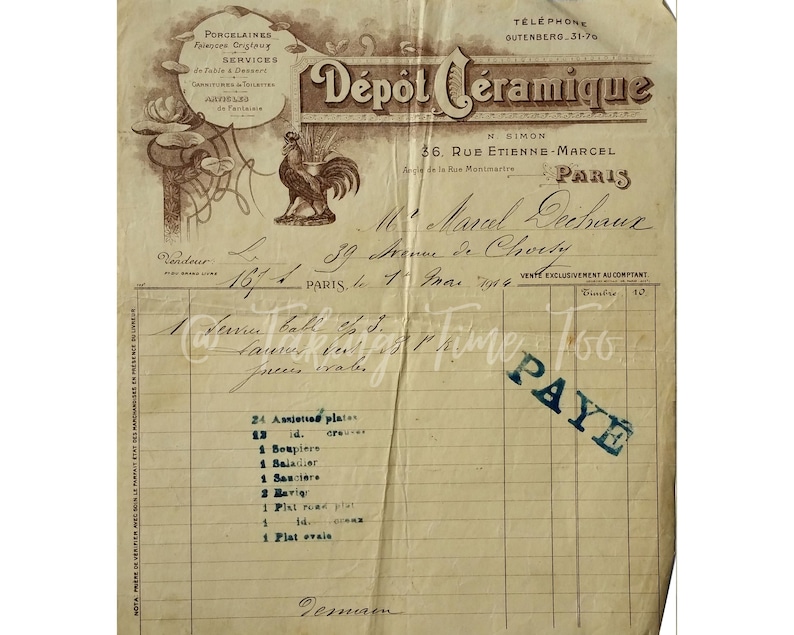 PORCELAINES
Faïences Cristaux
SERVICES
de Table & Dessert
GARNITURES de TOILETTES
ARTICLES
de Fantaisie
TÉLÉPHONE
GUTENBERG_31-70
Dépôt Céramique
N. SIMON
36, RUE ETIENNE-MARCEL
Angle de la Rue Montmartre
PARIS
Mr Marcel Dechaux
39 Avenue de Choisy
Vendeur
Fo DU GRAND LIVRE
167
PARIS, le 1er Mai 1914
VENTE EXCLUSIVEMENT AU COMPTANT.
Timbre 10
1 Service Table
ovales
@ Taking Time Too
PAYÉ
24 Assiettes plates
12 id. creuses
1 Soupière
1 Saladier
1 Saucière
2 Ravier
1 Plat rond plat
1 id. creux
1 Plat ovale
Demain
NOTA: PRIÈRE DE VÉRIFIER AVEC SOIN LE PARFAIT ÉTAT DES MARCHANDISES EN PRÉSENCE DU LIVREUR